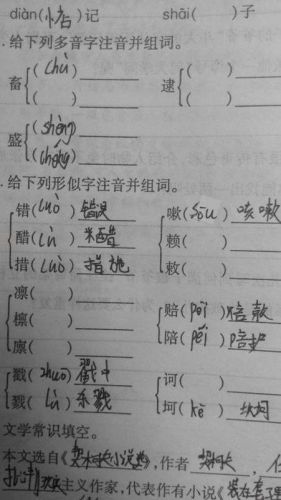 diàn(惦)记 shāi( )子
.给下列多音字注音并组词。
畜 (chù) ( )
逮 ( ) ( )
盛 (shèng) (chéng)
.给下列形似字注音并组词。
错(cuò) 错误 嗽(sòu) 咳嗽
醋(cù) 米醋 赖( )
措(cuò) 措施 敕( )
凛( )
檩( ) 赔(péi) 赔款
廪( ) 陪(péi) 陪护
戳(chuō) 戳中 诃( )
戮(lù) 杀戮 坷(kě) 坎坷
文学常识填空。
本文选自《契诃夫小说选》,作者 契诃夫,
批判现实主义作家,代表作有小说《装在套子里